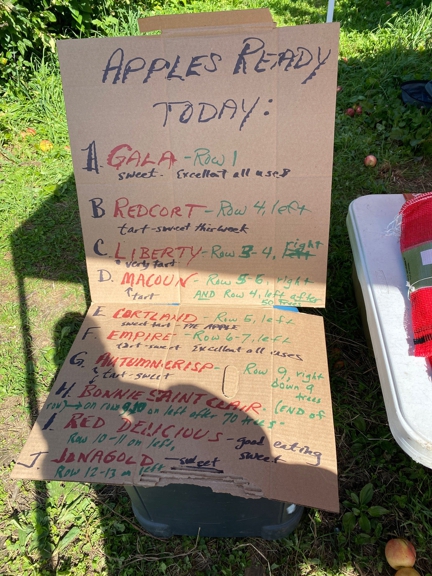 APPLES READY
TODAY:
A. GALA - Row 1
sweet - Excellent all uses
B REDCORT - Row 4, left
tart-sweet this week
C. LIBERTY - Row 3-4, right
very tart
D. MACOUN - Row 5-6, right
tart AND Row 4, left after
50 trees
E. CORTLAND - Row 5, left
sweet-tart PIE APPLE
F. EMPIRE - Row 6-7, left
tart-sweet Excellent all uses
G. AUTUMN CRISP - Row 9, right
tart-sweet down 9
trees
H. BONNIE SAINT CLAIR - (END OF
row) → on row on left after 70 trees
I. RED DELICIOUS - good eating
Row 10-11 on left, sweet
J. JONAGOLD sweet
Row 12-13 on left